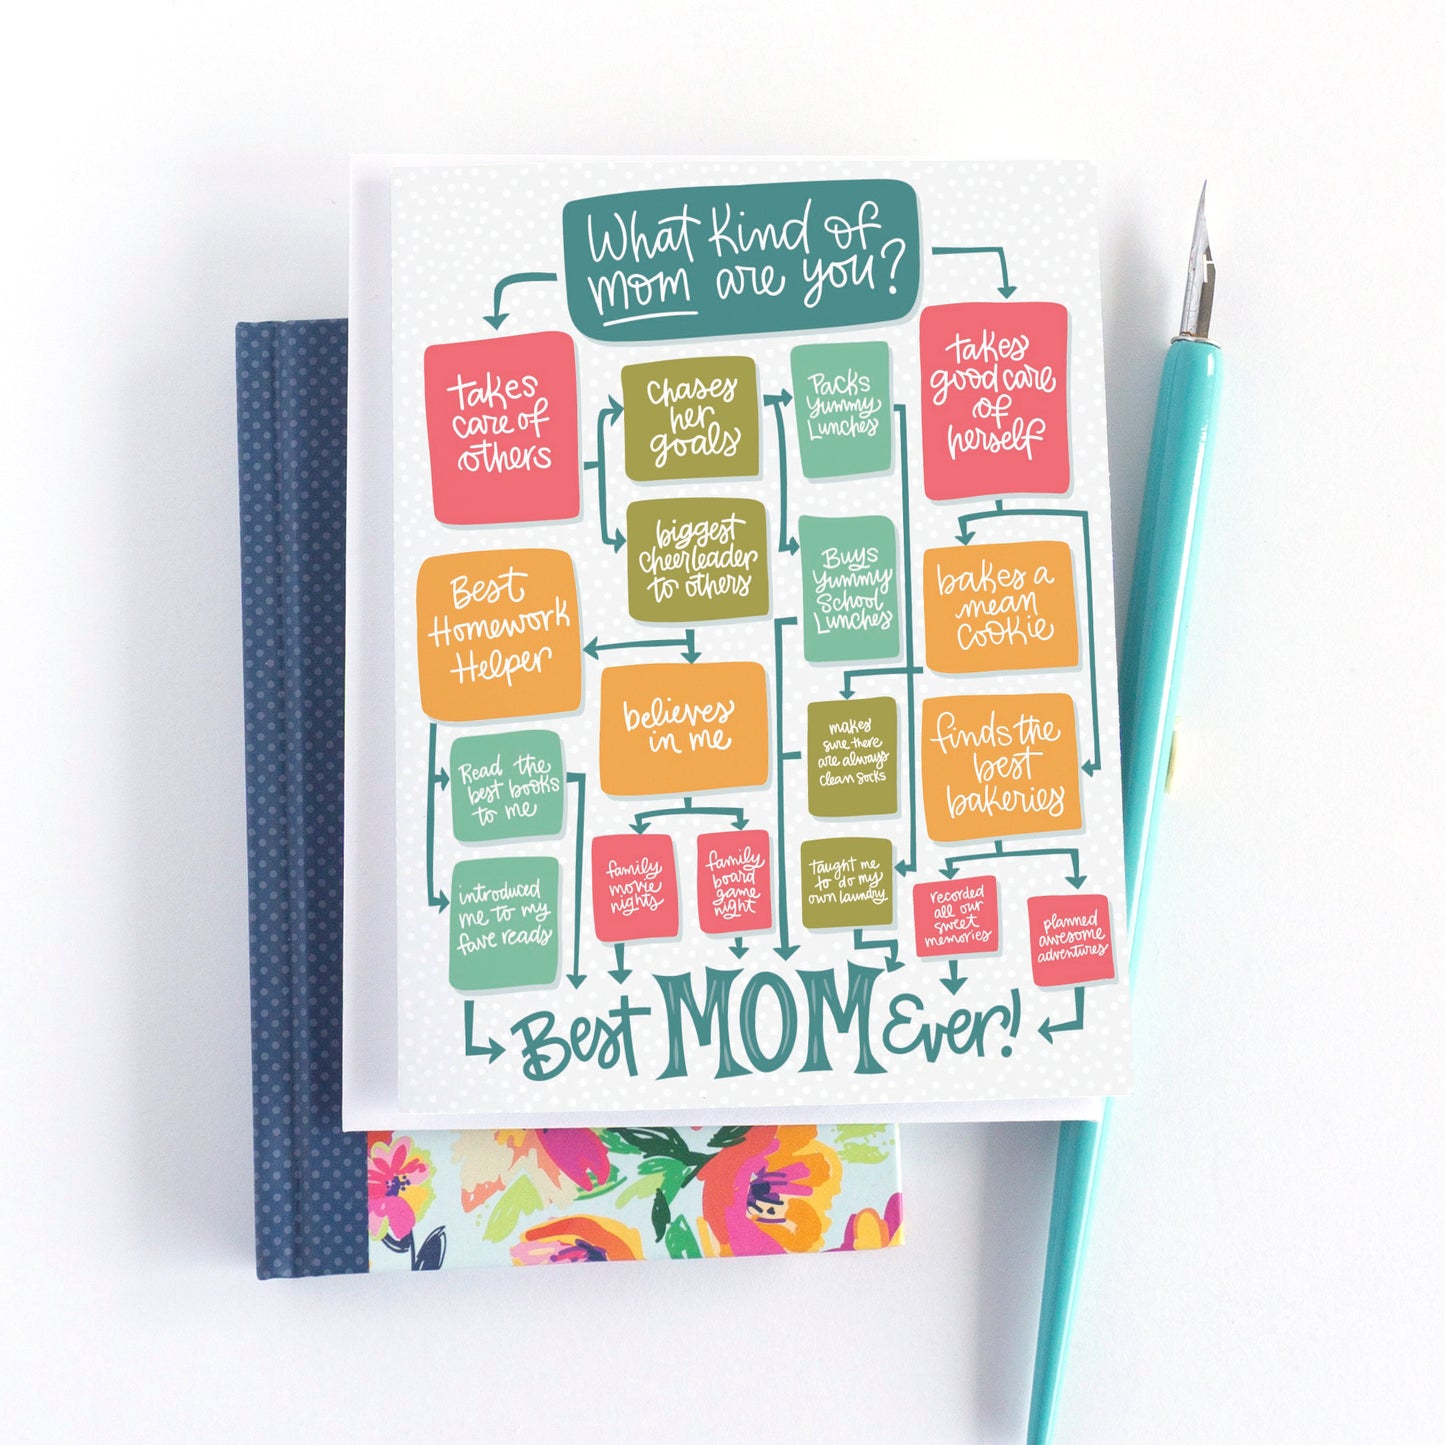 What Kind of
mom are you?
takes
care of
others
Chases
her
goals
Packs
Yummy
Lunches
takes
good care
of
herself
biggest
cheerleader
to others
Buys
Yummy
School
Lunches
bakes a
mean
cookie
Best
Homework
Helper
believes
in me
makes
sure there
are always
clean socks
finds the
best
bakeries
Read the
best books
to me
family
movie
nights
family
board
game
night
taught me
to do my
own laundry
recorded
all our
sweet
memories
planned
awesome
adventures
introduced
me to my
fave reads
Best MOM Ever!